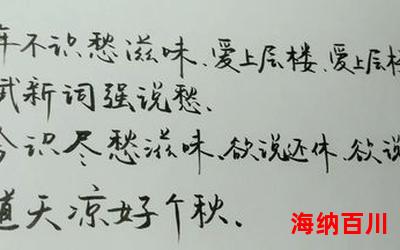 年不识愁滋味、爱上层楼、爱上层楼
赋新词强说愁、
今识尽愁滋味、欲说还休、欲说
道天凉好个秋、
海纳百川